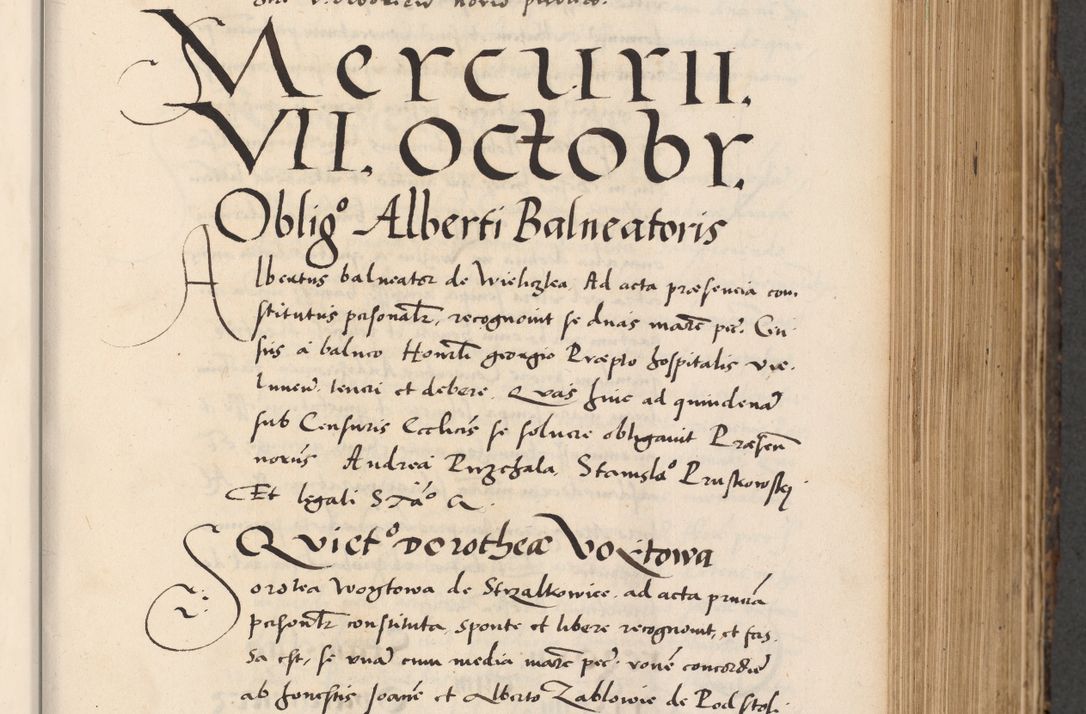 Mercurii.
VII. Octobr.
Obligº Alberti Balneatoris
Albertus balneator de Wieliczka, Ad acta præsencia con-
stitutus personalr, recognovit se duas marc pec. Cen
sus a balneo Honorli georgio Præpto hospitalis vie.
teneri et debere. Quas hinc ad quindenã
sub Censuris Ecclicis se soluere obligavit Præsen
Andrea Stanislº Pruskowskj
Et legali
Quietº Dorotheæ Voytowa
Dorotea Woytowa de Strzalkowice, ad acta
personlr constituta, sponte et libere recognovit, et fas-
sa est, se vnã cum media marc pec. concordie
ab honestis Joane et Alberto Zablowie de Podstol-